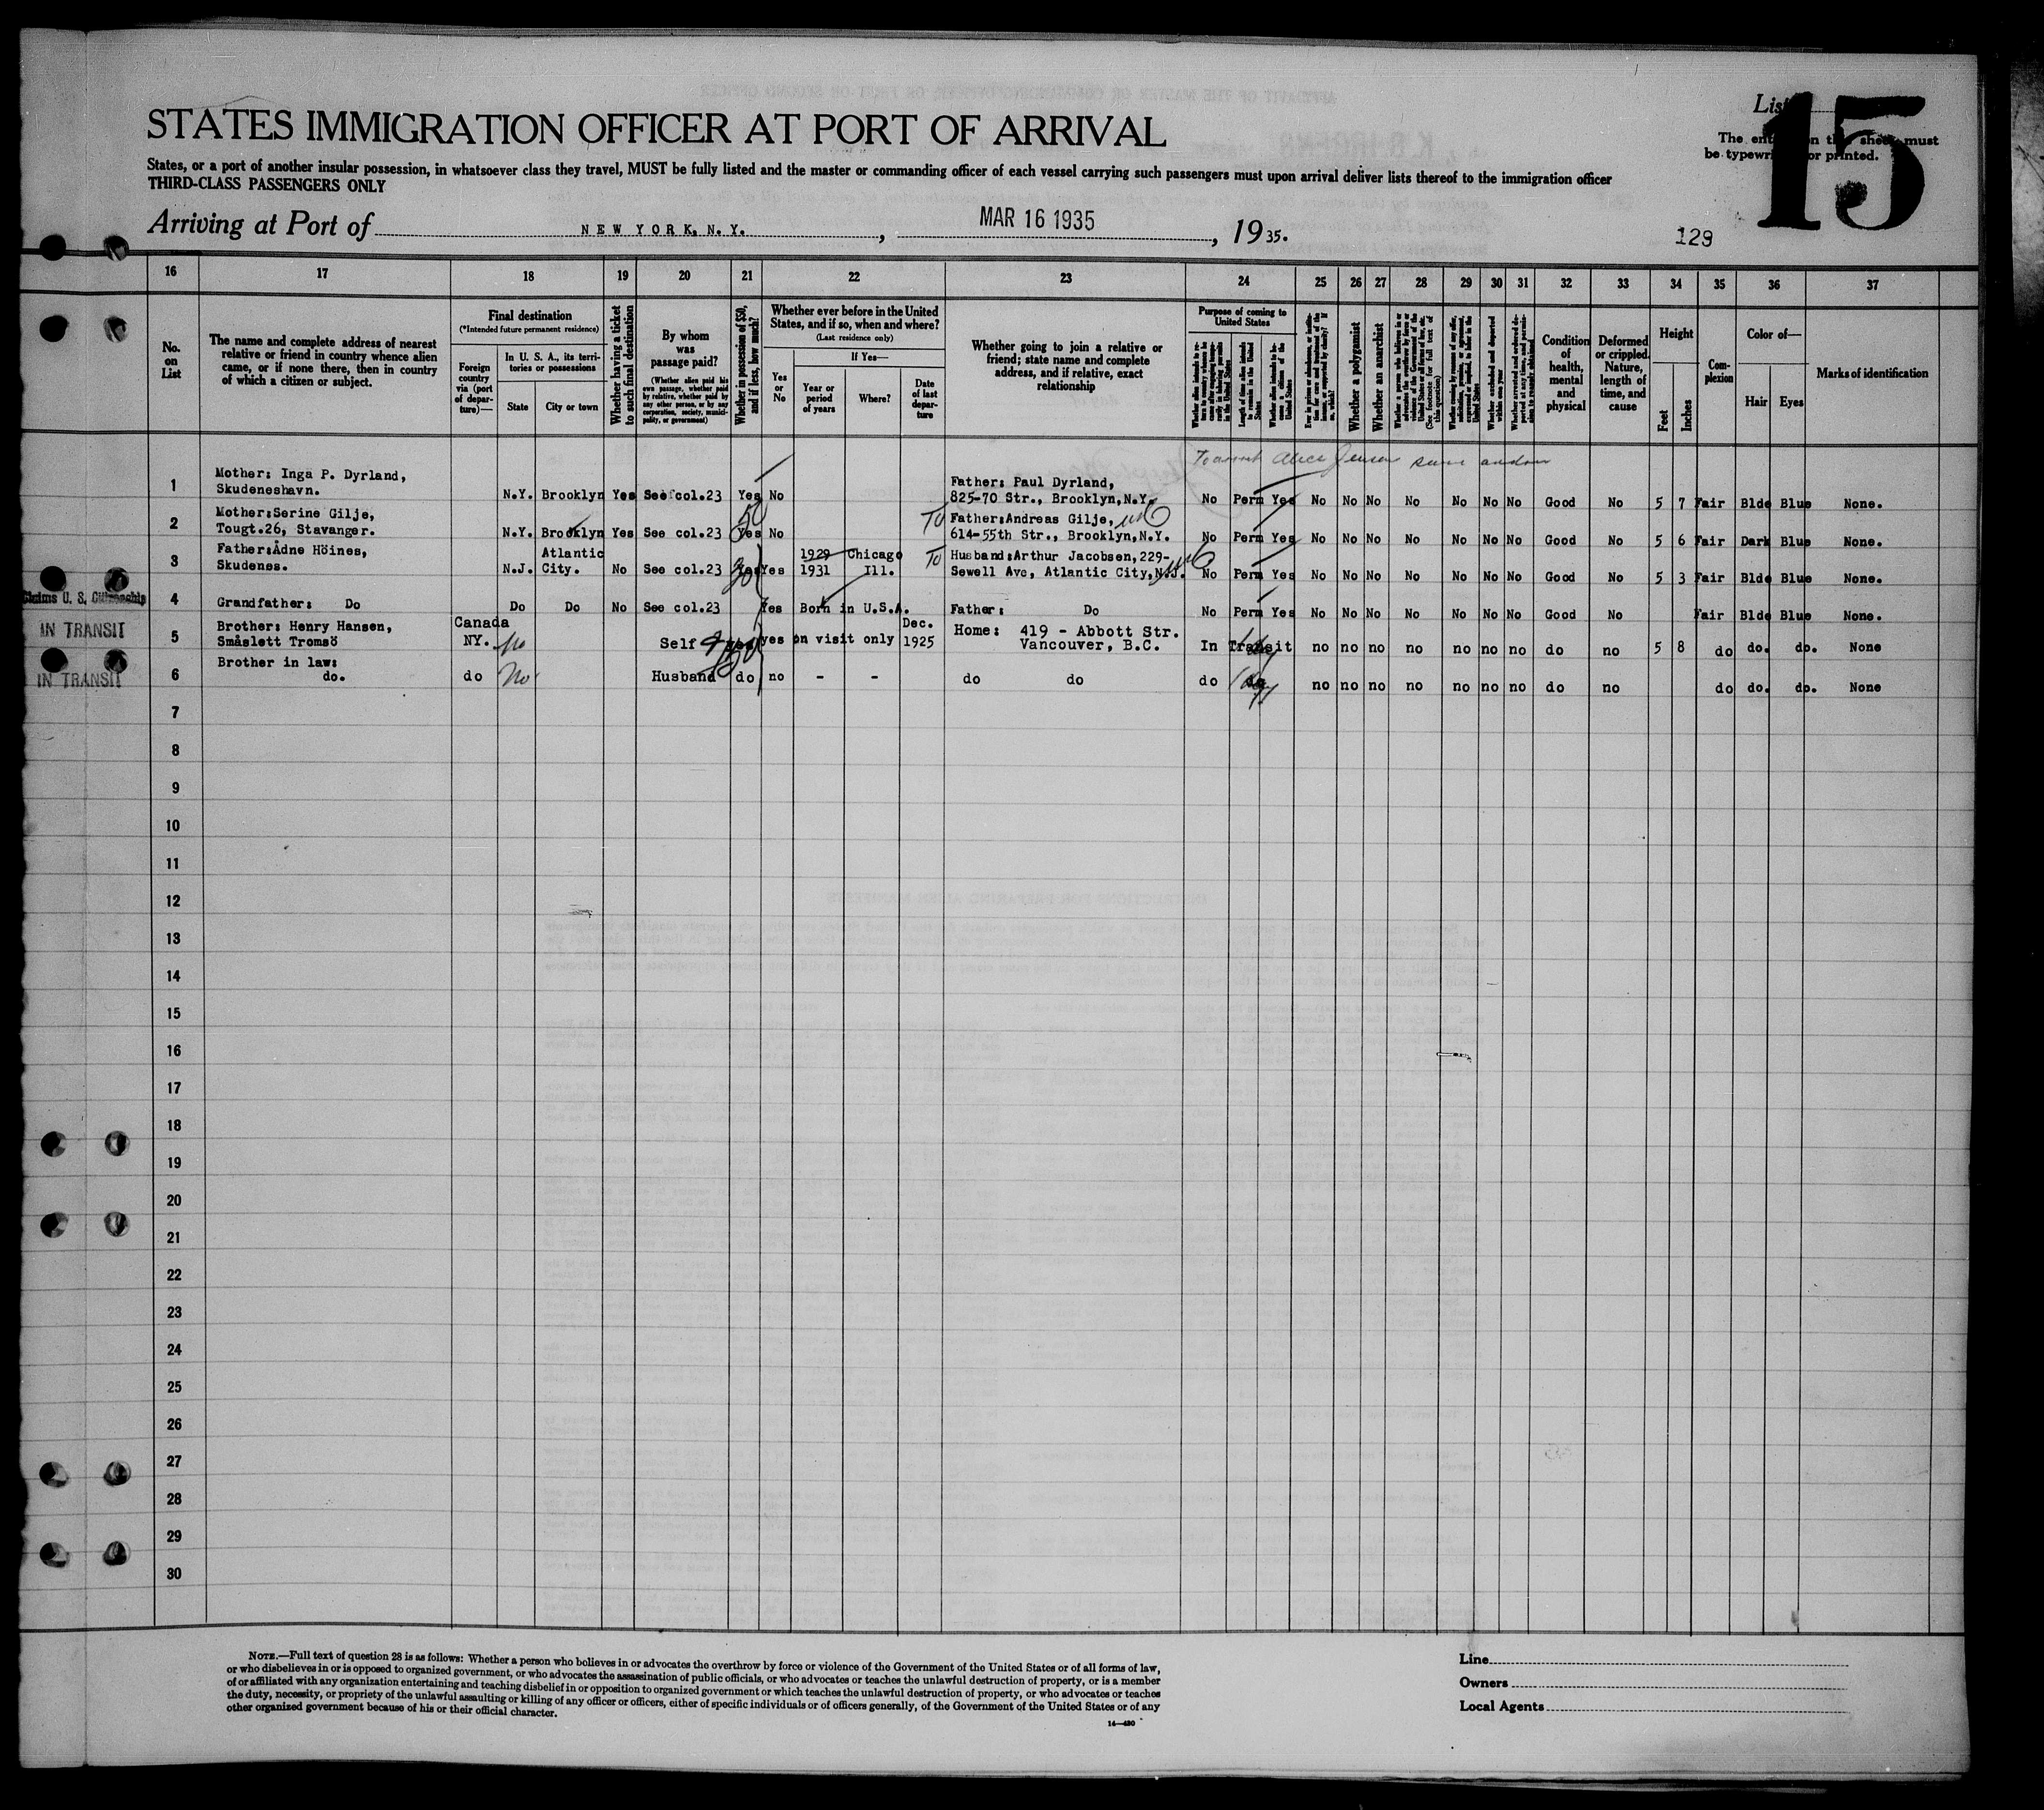 List
15
STATES IMMIGRATION OFFICER AT PORT OF ARRIVAL
The on the sheet must
be typewri or printed.
States, or a port of another insular possession, in whatsoever class they travel, MUST be fully listed and the master or commanding officer of each vessel carrying such passengers must upon arrival deliver lists thereof to the immigration officer
THIRD-CLASS PASSENGERS ONLY
Arriving at Port of NEW YORK, N. Y. , MAR 16 1935 , 1935.
129
16 17 18 19 20 21 22 23 24 25 26 27 28 29 30 31 32 33 34 35 36 37
No. on List
The name and complete address of nearest relative or friend in country whence alien came, or if none there, then in country of which a citizen or subject.
Final destination
(*Intended future permanent residence)
Foreign country via (port of departure)—
In U. S. A., its territories or possessions
State
City or town
Whether having a ticket to such final destination
By whom was passage paid?
(Whether alien paid his own passage, whether paid by relative, whether paid by any other person, or by any corporation, society, municipality, or government)
Whether in possession of $50, and if less, how much?
Whether ever before in the United States, and if so, when and where?
(Last residence only)
Yes or No
If Yes—
Year or period of years
Where?
Date of last departure
Whether going to join a relative or friend; state name and complete address, and if relative, exact relationship
Purpose of coming to United States
Length of time alien intends to remain in the United States
Whether alien intends to become a citizen of the United States
Whether a polygamist
Whether an anarchist
(See footnote for full text of this question)
Condition of health, mental and physical
Deformed or crippled. Nature, length of time, and cause
Height
Feet
Inches
Complexion
Color of—
Hair
Eyes
Marks of identification
1 Mother: Inga P. Dyrland, Father: Paul Dyrland,
Skudeneshavn. N.Y. Brooklyn Yes See col.23 Yes No 825-70 Str., Brooklyn,N.Y. No Perm Yes No No No No No No No Good No 5 7 Fair Blde Blue None.
50
2 Mother:Serine Gilje, To Father:Andreas Gilje,
Tougt.26, Stavanger. N.Y. Brooklyn Yes See col.23 Yes No 614-55th Str., Brooklyn,N.Y. No Perm Yes No No No No No No No Good No 5 6 Fair Dark Blue None.
3 Father:Ådne Höines, Atlantic 1929 Chicago To Husband:Arthur Jacobsen,229-
Skudenes. N.J. City. No See col.23 Yes Yes 1931 Ill. Sewell Ave, Atlantic City,N.J. No Perm Yes No No No No No No No Good No 5 3 Fair Blde Blue None.
Claims U. S. Citizenship
4 Grandfather: Do Do Do No See col.23 Yes Born in U.S.A. Father: Do No Perm Yes No No No No No No No Good No Fair Blde Blue None.
IN TRANSIT
5 Brother: Henry Hansen, Canada Dec. Home: 419 - Abbott Str.
Småslett Tromsö NY. No Self yes on visit only 1925 Vancouver, B.C. In Transit no no no no no no no do no 5 8 do do. do. None
IN TRANSIT
6 Brother in law:
do. do No Husband do no - - do do do no no no no no no no do no do do. do. None
7
8
9
10
11
12
13
14
15
16
17
18
19
20
21
22
23
24
25
26
27
28
29
30
NOTE.—Full text of question 28 is as follows: Whether a person who believes in or advocates the overthrow by force or violence of the Government of the United States or of all forms of law,
or who disbelieves in or is opposed to organized government, or who advocates the assassination of public officials, or who advocates or teaches the unlawful destruction of property, or is a member
of or affiliated with any organization entertaining and teaching disbelief in or opposition to organized government or which teaches the unlawful destruction of property, or who advocates or teaches
the duty, necessity, or propriety of the unlawful assaulting or killing of any officer or officers, either of specific individuals or of officers generally, of the Government of the United States or of any
other organized government because of his or their official character.
14—430
Line
Owners
Local Agents